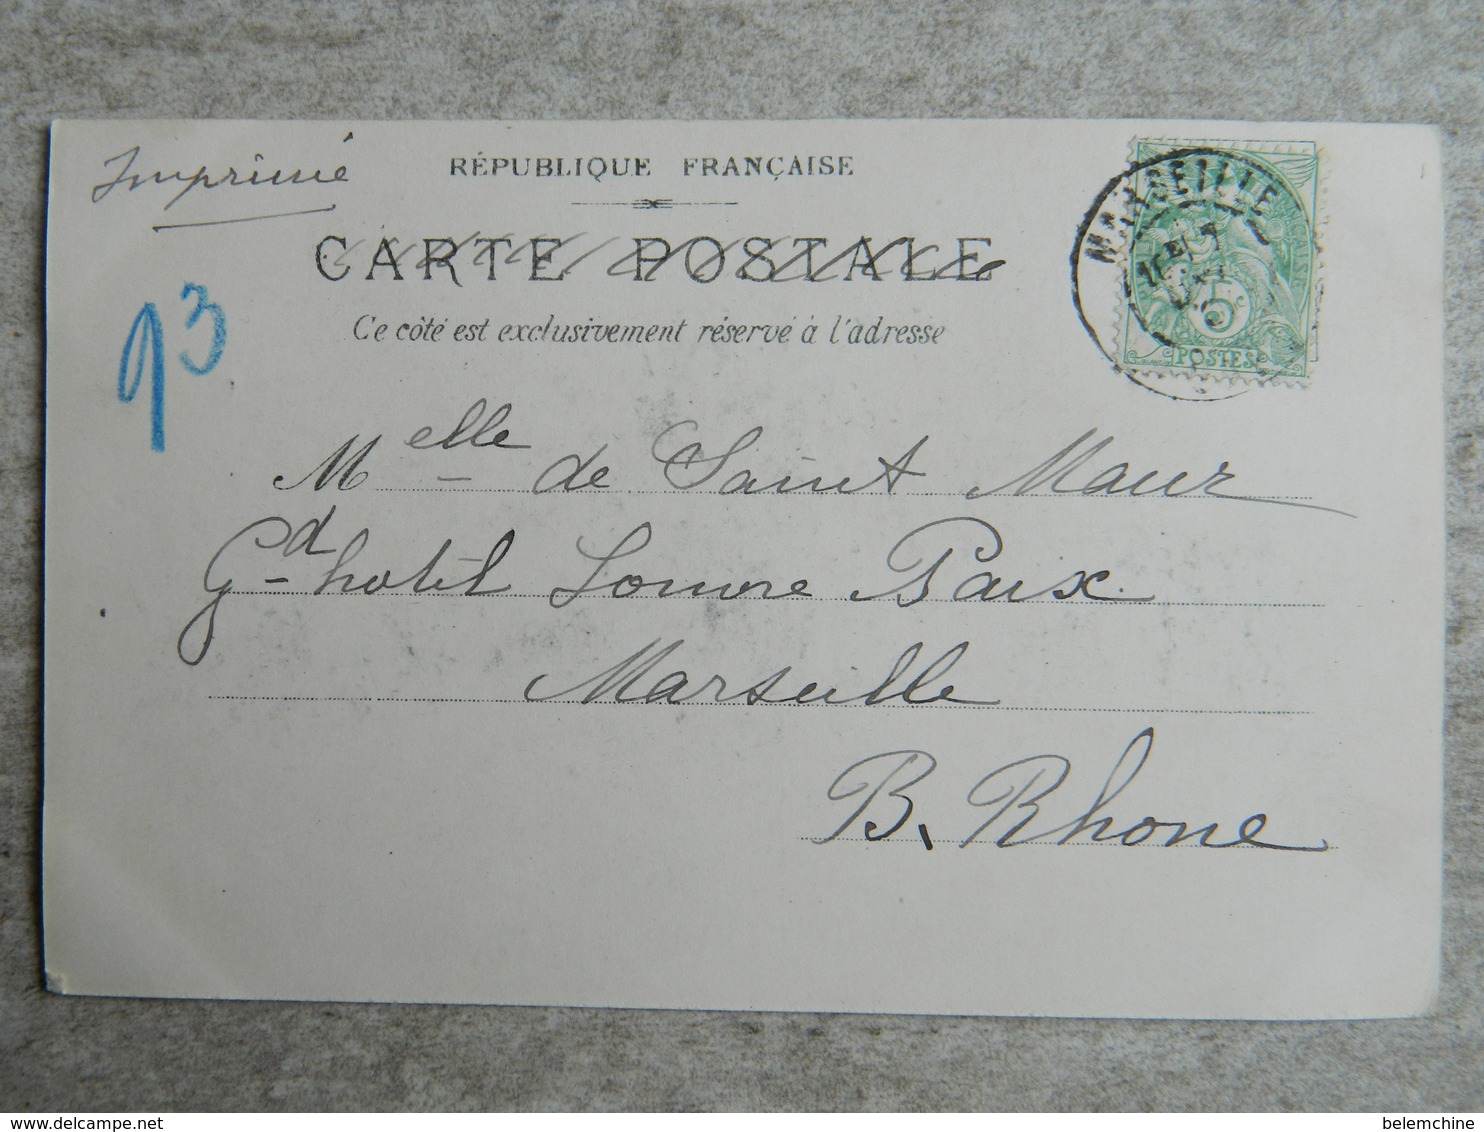 Imprimé
RÉPUBLIQUE FRANÇAISE
CARTE POSTALE
Ce côté est exclusivement réservé à l'adresse
93
MARSEILLE
5c
POSTES
Melle de Saint Maur
Gd hotel Louvre Paix
Marseille
B. Rhone
www.delcampe.net
belemchine